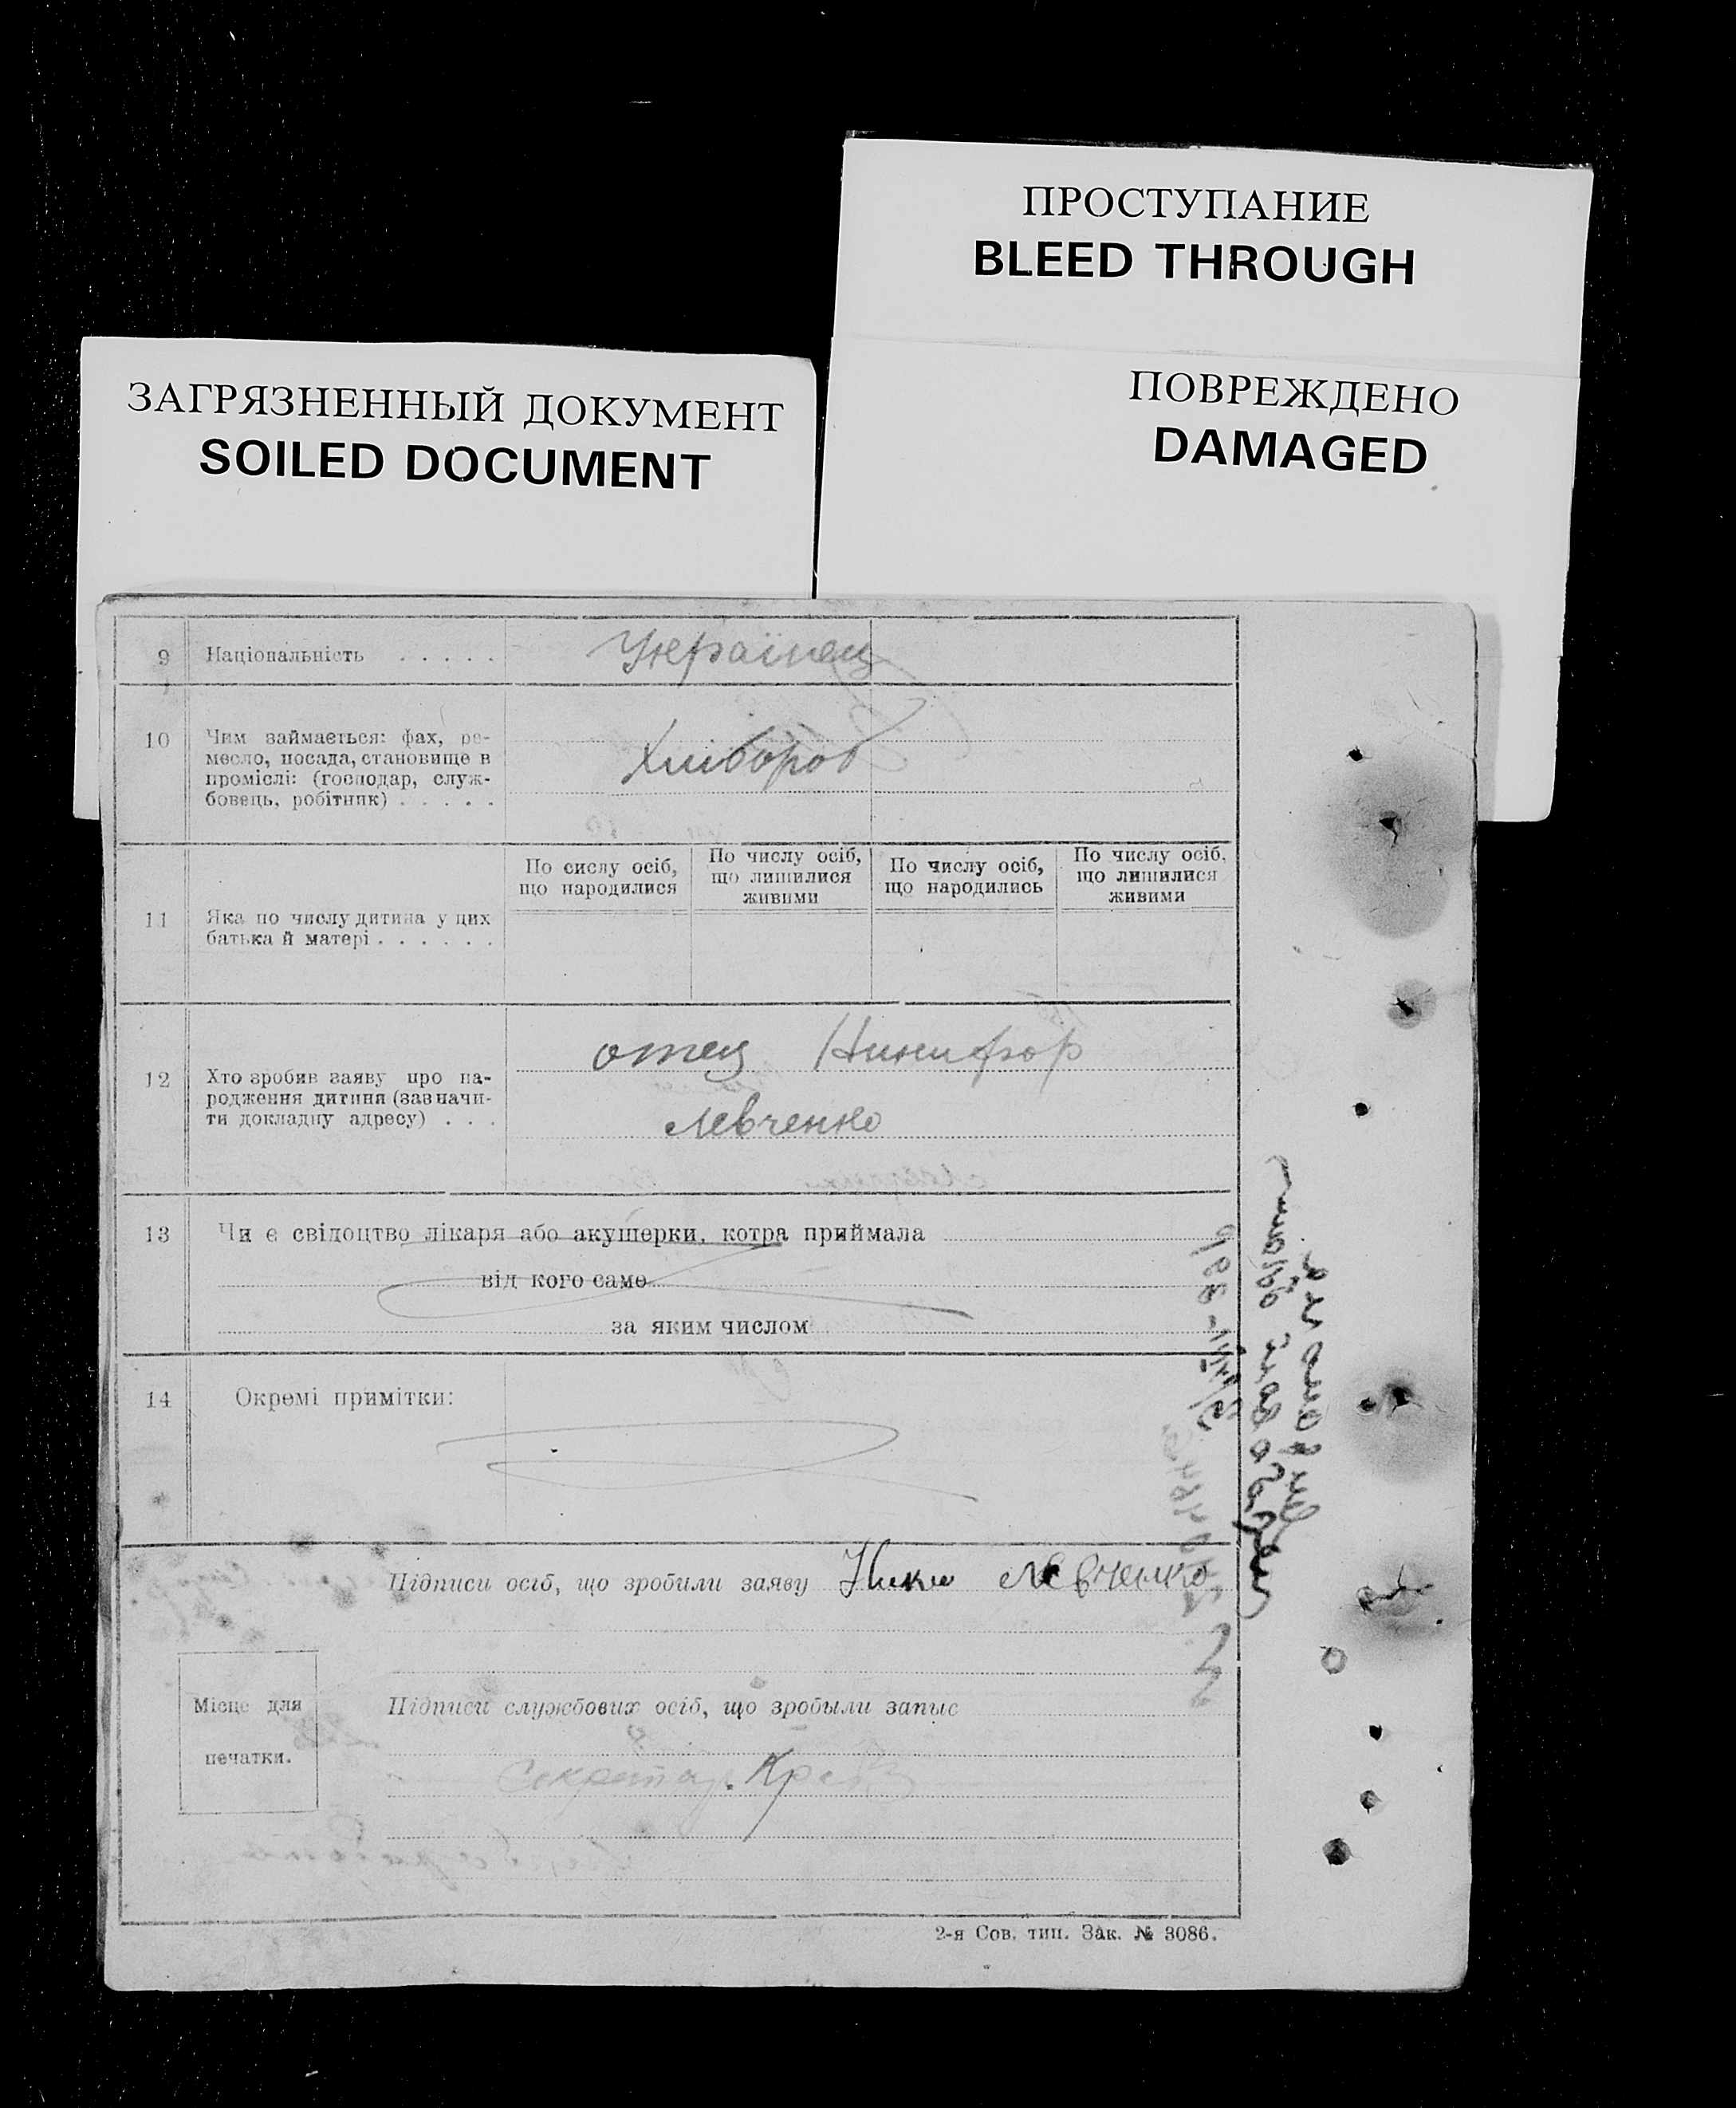 ПРОСТУПАНИЕ
BLEED THROUGH
ПОВРЕЖДЕНО
DAMAGED
ЗАГРЯЗНЕННЫЙ ДОКУМЕНТ
SOILED DOCUMENT
9 Національність . . . . . Українец
10 Чим займається: фах, ре-
месло, посада, становище в
проміслі: (господар, служ-
бовець, робітник) . . . . .
Хлібороб
11 Яка по числу дитина у цих
батька й матері . . . . . .
По сислу осіб,
що народилися
По числу осіб,
що лишилися
живими
По числу осіб,
що народились
По числу осіб,
що лишилися
живими
12 Хто зробив заяву про на-
родження дитини (зазначи-
ти докладну адресу) . . .
отец Никифор
Левченко
13 Чи є свідоцтво лікаря або акушерки, котра приймала
від кого саме
за яким числом
14 Окремі примітки:
Підписи осіб, що зробили заяву Ники Левченко
Місце для
печатки.
Підписи службових осіб, що зробыли запыс
Секретар
2-я Сов. тип. Зак. № 3086.